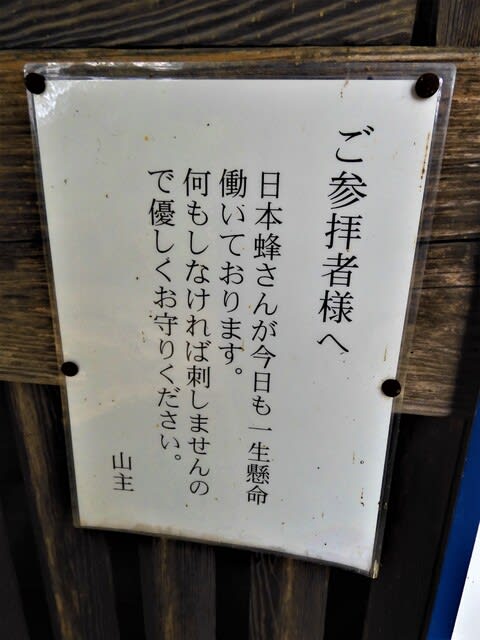 ご参拝者様へ
日本蜂さんが今日も一生懸命
働いております。
何もしなければ刺しませんの
で優しくお守りください。
山主